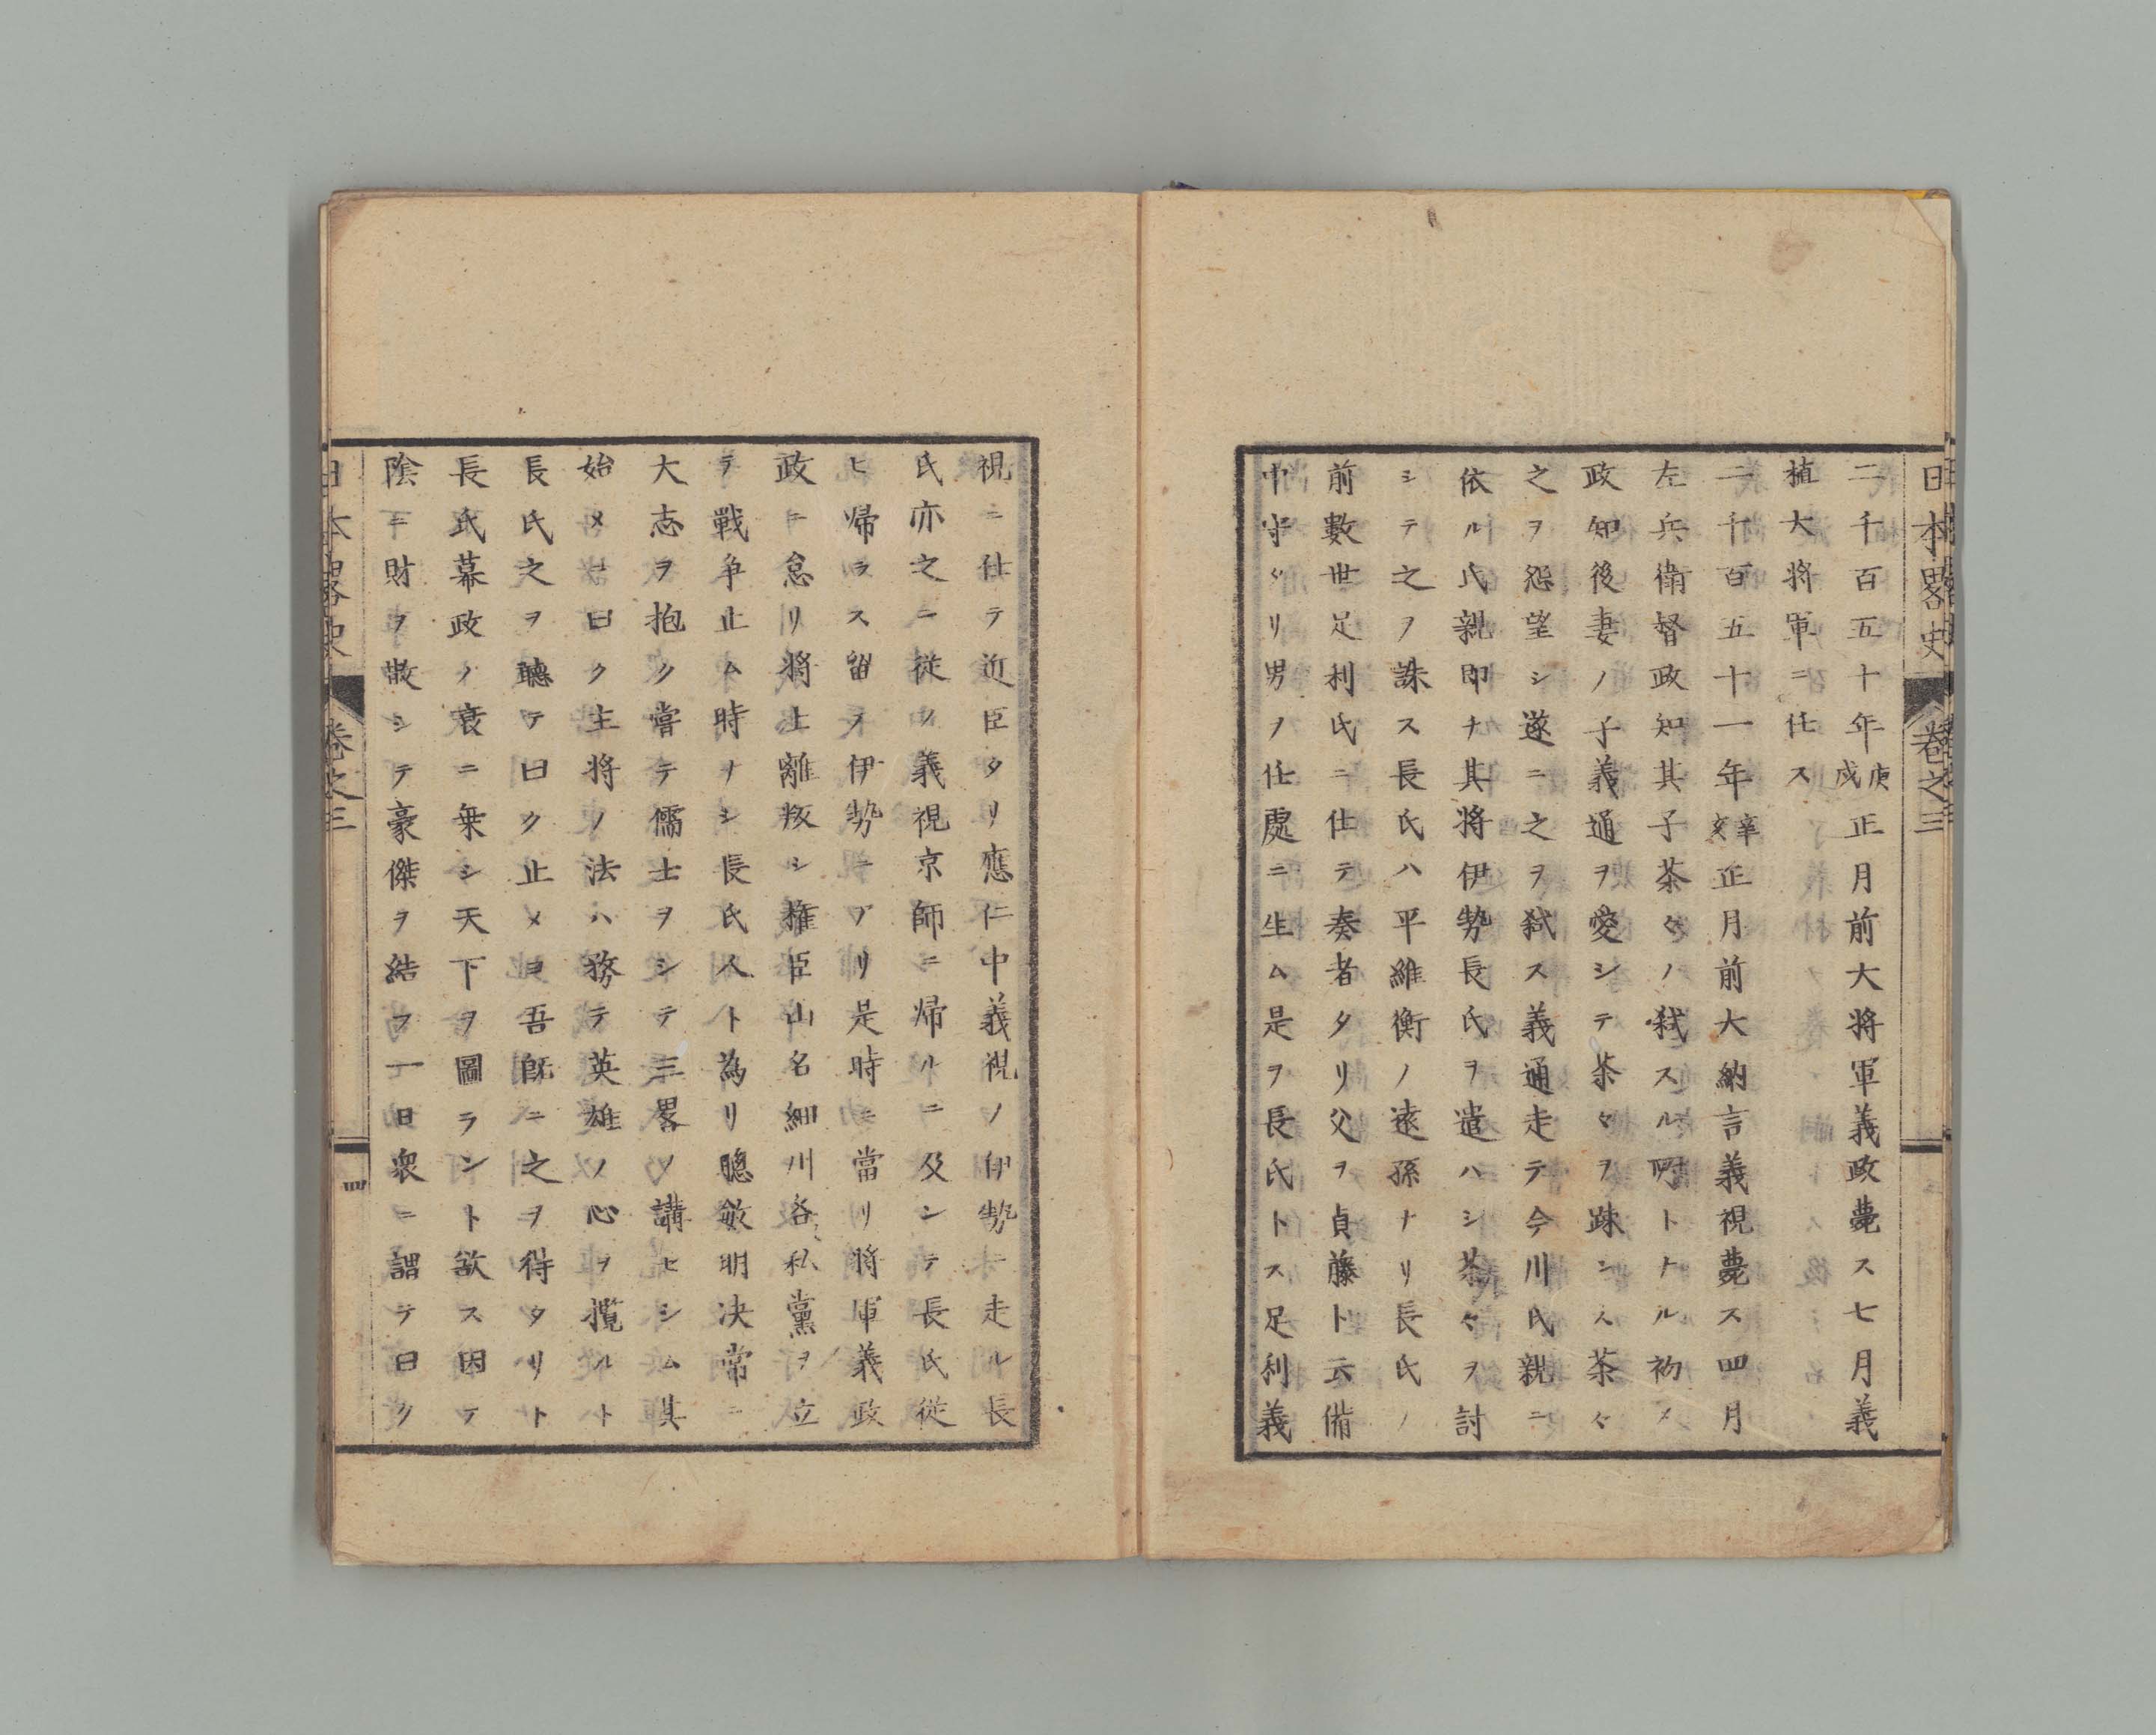 日本畧史 卷之三
二千百五十年庚戌正月前大将軍義政薨ス七月義
植大将軍ニ任ス
二千百五十一年辛亥正月前大納言義視薨ス四月
左兵衛督政知其子茶々ノ弑スル所トナル初メ
政知後妻ノ子義通ヲ愛シテ茶々ヲ疎ンス茶々
之ヲ怨望シ遂ニ之ヲ弑ス義通走テ今川氏親ニ
依ル氏親即ナ其将伊勢長氏ヲ遣ハシ茶々ヲ討
シテ之ヲ誅ス長氏ハ平維衡ノ遠孫ナリ長氏ノ
前數世足利氏ニ仕テ奏者タリ父ヲ貞藤ト云備
中守タリ男ノ任處ニ生ム是ヲ長氏トス足利義
視ニ仕テ近臣タリ應仁中義視ノ伊勢ニ走ル長
氏亦之ニ従ソ義視京師ニ帰ルニ及ンテ長氏従
ヒ帰ラス留ノ伊勢ニアリ是時ニ當リ将軍義政
政ニ怠リ将士離叛シ権臣山名細川各私黨ヲ立
テ戰争止ム時ナシ長氏人ト為リ聰敏明决常ニ
大志ヲ抱ク嘗テ儒士ヲシテ三畧ノ講セシム其
始メニ曰ク主将ノ法ハ務テ英雄ノ心ヲ攬ルト
長氏之ヲ聽テ曰ク止メヨ吾既ニ之ヲ得タリト
長氏幕政ノ衰ニ乗シ天下ヲ圖ラント欲ス因テ
陰ニ財ヲ散シテ豪傑ヲ結フ一日衆ニ謂テ曰ク
日本畧史 卷之三 四